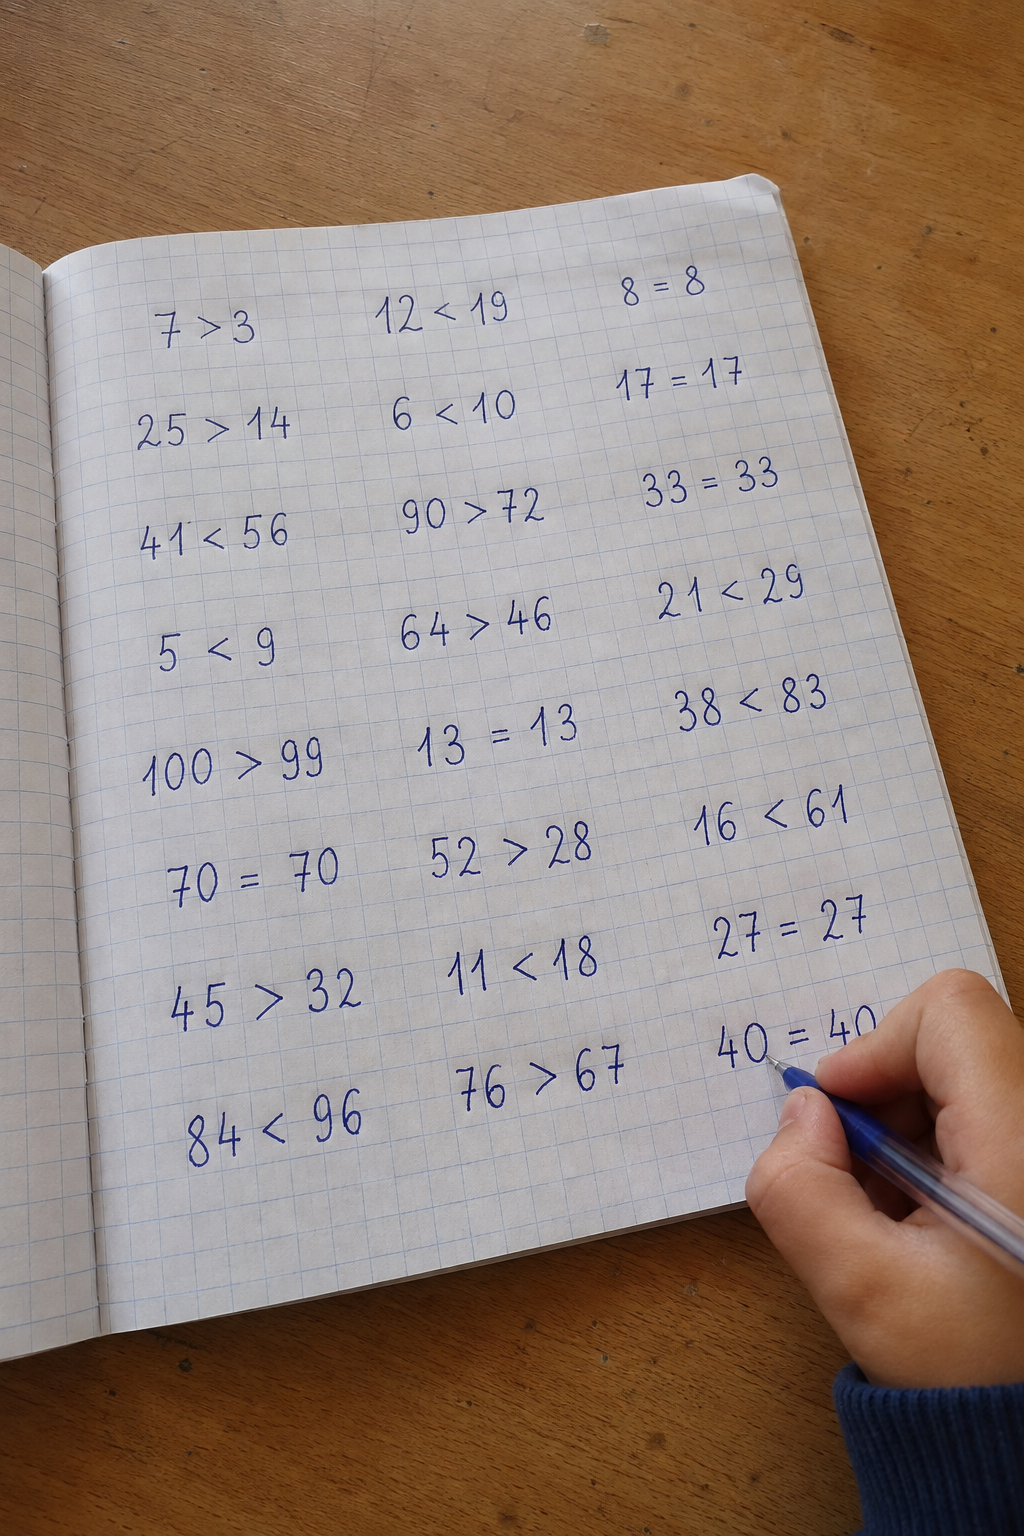 7 > 3 12 < 19 8 = 8
25 > 14 6 < 10 17 = 17
41 < 56 90 > 72 33 = 33
5 < 9 64 > 46 21 < 29
100 > 99 13 = 13 38 < 83
70 = 70 52 > 28 16 < 61
45 > 32 11 < 18 27 = 27
84 < 96 76 > 67 40 = 40